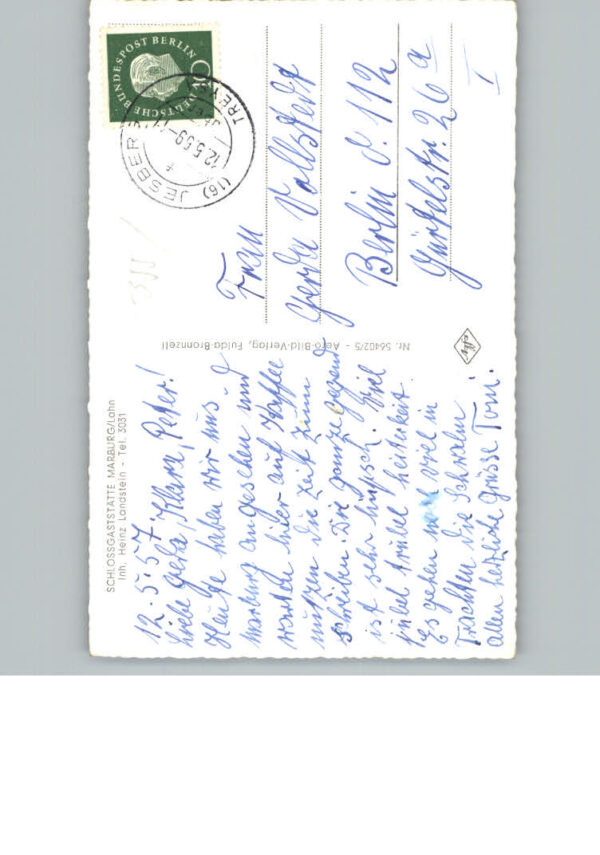 SCHLOSSGASTSTÄTTE MARBURG/Lahn
Inh. Heinz Landstein - Tel. 3031
12.5.57.
Liebe Gerda, Klara, Peter!
Heute haben wir uns
Marburg angesehen und
warten hier auf Kaffee
nutzen die Zeit zum
schreiben. Die ganze Gegend
ist sehr hübsch. Viel
Jubel Trubel Heiterkeit.
Es gehen noch viel in
Trachten die Schwalm
allen herzliche Grüsse Toni.
Nr. 56402/5 - Aero-Bild-Verlag, Fulda-Bronnzell
DEUTSCHE BUNDESPOST BERLIN
(16) JESBERG
12.5.59
TREYSA
Frau
Gerda Vollstedt
Berlin O. 112
Gürtelstr. 26 a
I